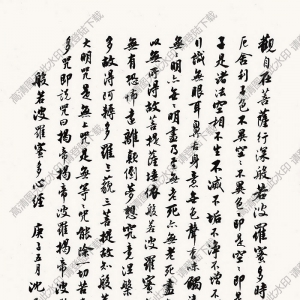 觀自在菩薩行深般若波羅蜜多時
厄舍利子色不異空空不異色色即是空空即
子是諸法空相不生不滅不垢不淨不
行識無眼耳鼻舌身意無色聲香味觸
無無明亦無無明盡乃至無老死亦無老死盡
以無所得故菩提薩埵依般若波羅蜜
無有恐怖遠離顛倒夢想究竟涅槃
多故得阿耨多羅三藐三菩
大明咒是無上咒是無等等咒能除一切苦
多咒即說咒曰揭帝揭帝波羅揭帝波羅
般若波羅蜜多心經 庚子五月沈